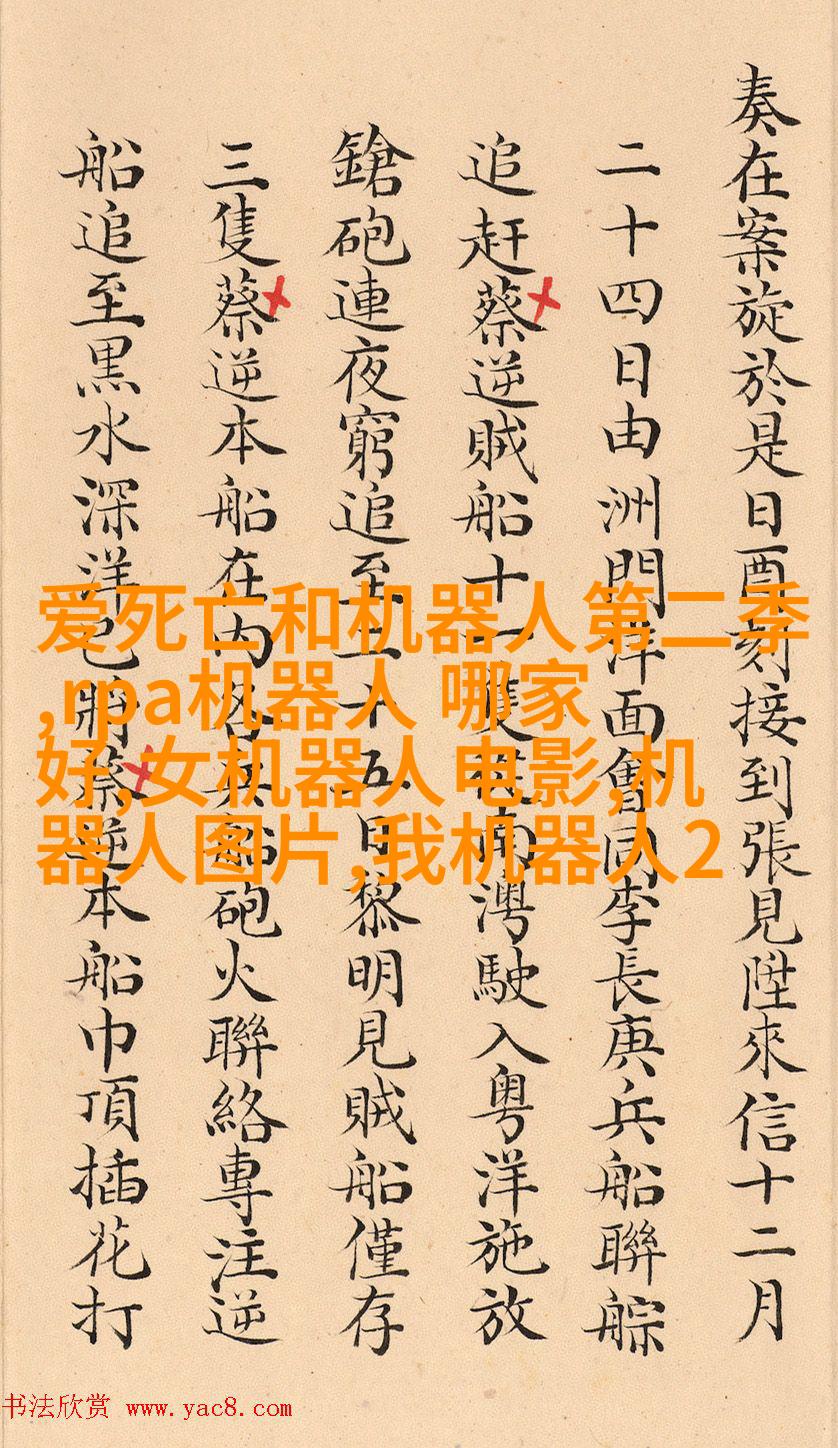 奏在案旋於是日酉刻接到張見陞來信十二月
二十四日由洲門洋面會同李長庚兵船聯䑸
追赶蔡逆賊船十一隻南澳駛入粤洋施放
鎗砲連夜窮追至二十五日黎明見賊船僅存
三隻蔡逆本船在内各兵船砲火聯絡專注逆
船追至黒水深洋已將蔡逆本船巾頂插花打
爱死亡和机器人第二季
,rpa机器人 哪家
好,女机器人电影,机
器人图片,我机器人2
书法欣赏 www.yac8.com